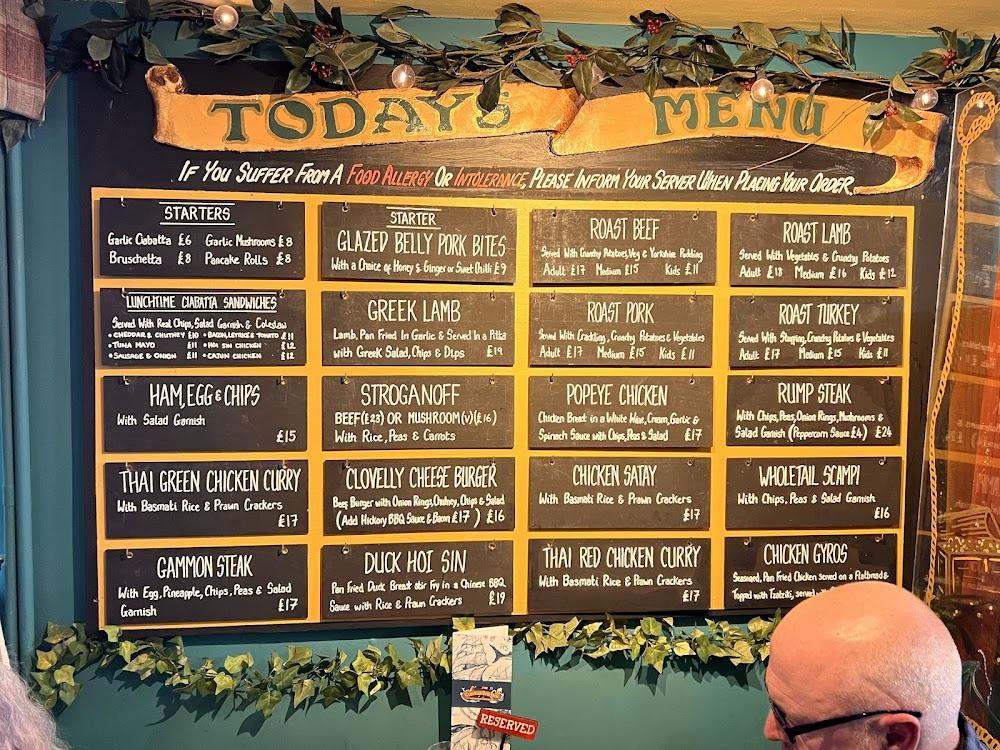 TODAY'S MENU
IF YOU SUFFER FROM A FOOD ALLERGY OR INTOLERANCE, PLEASE INFORM YOUR SERVER WHEN PLACING YOUR ORDER.
STARTERS
Garlic Ciabatta £6 Garlic Mushrooms £8
Bruschetta £8 Pancake Rolls £8
STARTER
GLAZED BELLY PORK BITES
With a Choice of Honey & Ginger or Sweet Chilli £9
ROAST BEEF
Served With Crunchy Potatoes, Veg & Yorkshire Pudding
Adult £17 Medium £15 Kids £11
ROAST LAMB
Served With Vegetables & Crunchy Potatoes
Adult £18 Medium £16 Kids £12
LUNCHTIME CIABATTA SANDWICHES
Served With Real Chips, Salad Garnish & Coleslaw
• CHEDDAR & CHUTNEY £10 • BACON, LETTUCE & TOMATO £11
• TUNA MAYO £11 • HOI SIN CHICKEN £12
• SAUSAGE & ONION £11 • CAJUN CHICKEN £12
GREEK LAMB
Lamb, Pan Fried In Garlic & Served In a Pitta
with Greek Salad, Chips & Dips £19
ROAST PORK
Served With Crackling, Crunchy Potatoes & Vegetables
Adult £17 Medium £15 Kids £11
ROAST TURKEY
Served With Stuffing, Crunchy Potatoes & Vegetables
Adult £17 Medium £15 Kids £11
HAM, EGG & CHIPS
With Salad Garnish
£15
STROGANOFF
BEEF (£23) OR MUSHROOM (V) (£16)
With Rice, Peas & Carrots
POPEYE CHICKEN
Chicken Breast in a White Wine, Cream, Garlic &
Spinach Sauce with Chips, Peas & Salad £17
RUMP STEAK
With Chips, Peas, Onion Rings, Mushrooms &
Salad Garnish (Peppercorn Sauce £4) £24
THAI GREEN CHICKEN CURRY
With Basmati Rice & Prawn Crackers
£17
CLOVELLY CHEESE BURGER
Beef Burger with Onion Rings, Chutney, Chips & Salad
(Add Hickory BBQ Sauce & Bacon £17) £16
CHICKEN SATAY
With Basmati Rice & Prawn Crackers
£17
WHOLETAIL SCAMPI
With Chips, Peas & Salad Garnish
£16
GAMMON STEAK
With Egg, Pineapple, Chips, Peas & Salad
Garnish £17
DUCK HOI SIN
Pan Fried Duck Breast stir Fry in a Chinese BBQ
Sauce with Rice & Prawn Crackers £19
THAI RED CHICKEN CURRY
With Basmati Rice & Prawn Crackers
£17
CHICKEN GYROS
Seasoned, Pan Fried Chicken served on a Flatbread &
Topped with Tzatziki, served
RESERVED